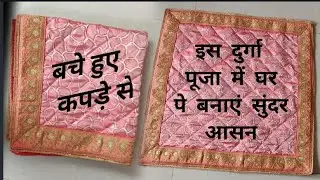 बचे हुए
कपड़े से
इस दुर्गा
पूजा में घर
पे बनाएं सुंदर
आसन